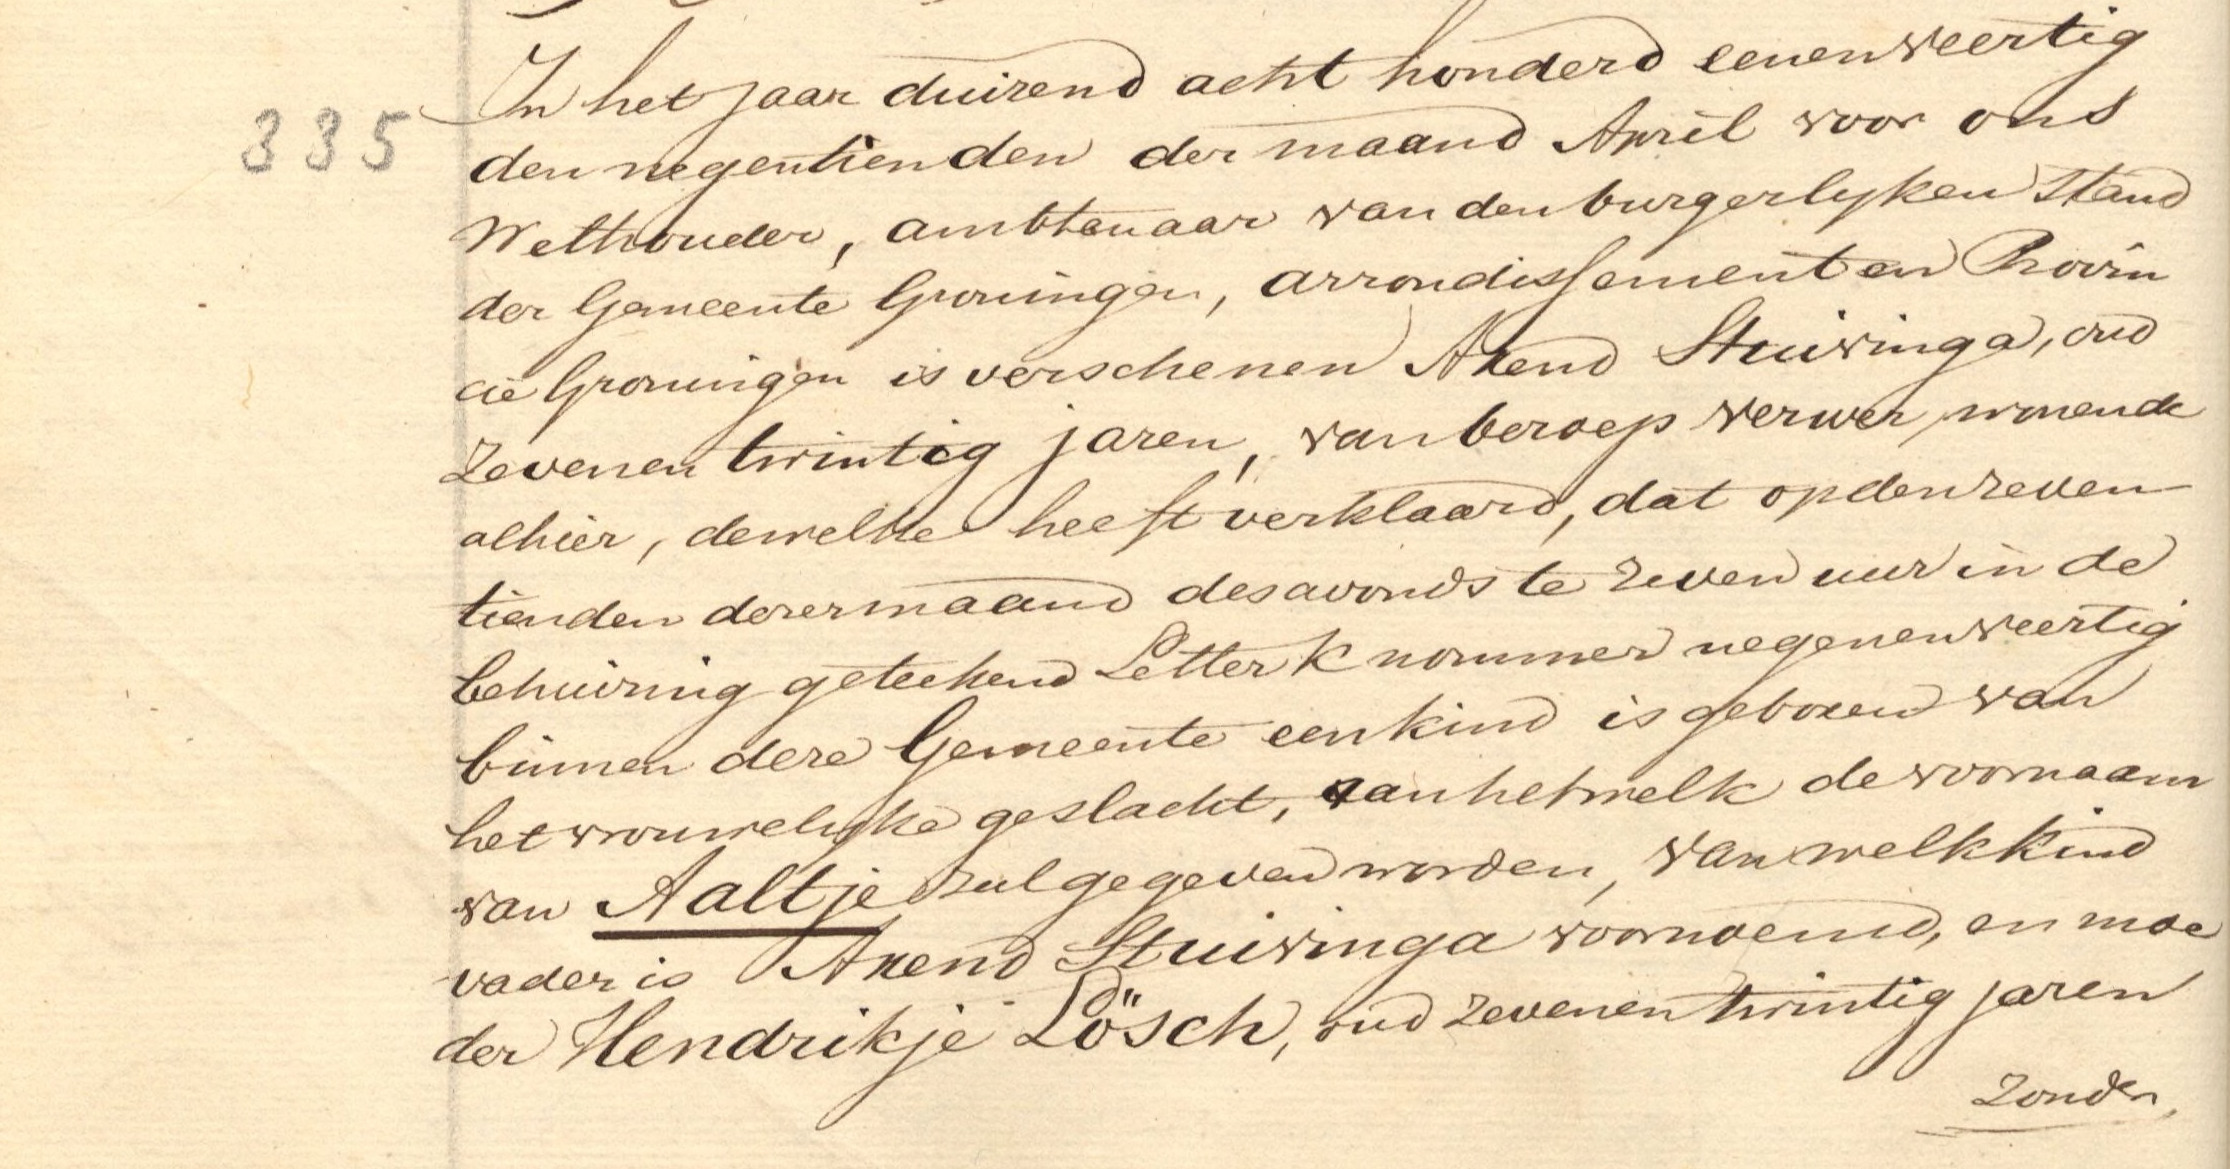 335
In het jaar duizend acht honderd eenenveertig
den negentienden der maand April voor ons
Wethouder, ambtenaar van den burgerlyken Stand
der Gemeente Groningen, arrondissement en Provin
cie Groningen is verschenen Arend Stuivinga, oud
Zevenentwintig jaren, van beroep verwer, wonende
alhier, dewelke heeft verklaard, dat op den zeven
tienden dezer maand des avonds te zeven uur in de
behuizing geteekend Letter K nommer negenenveertig
binnen deze Gemeente een kind is geboren van
het vrouwelyke geslacht, aan hetwelk de voornaam
van Aaltje zal gegeven worden, van welk kind
vader is Arend Stuivinga voornoemd, en moe
der Hendrikje Lösch, oud zevenentwintig jaren
Zonder